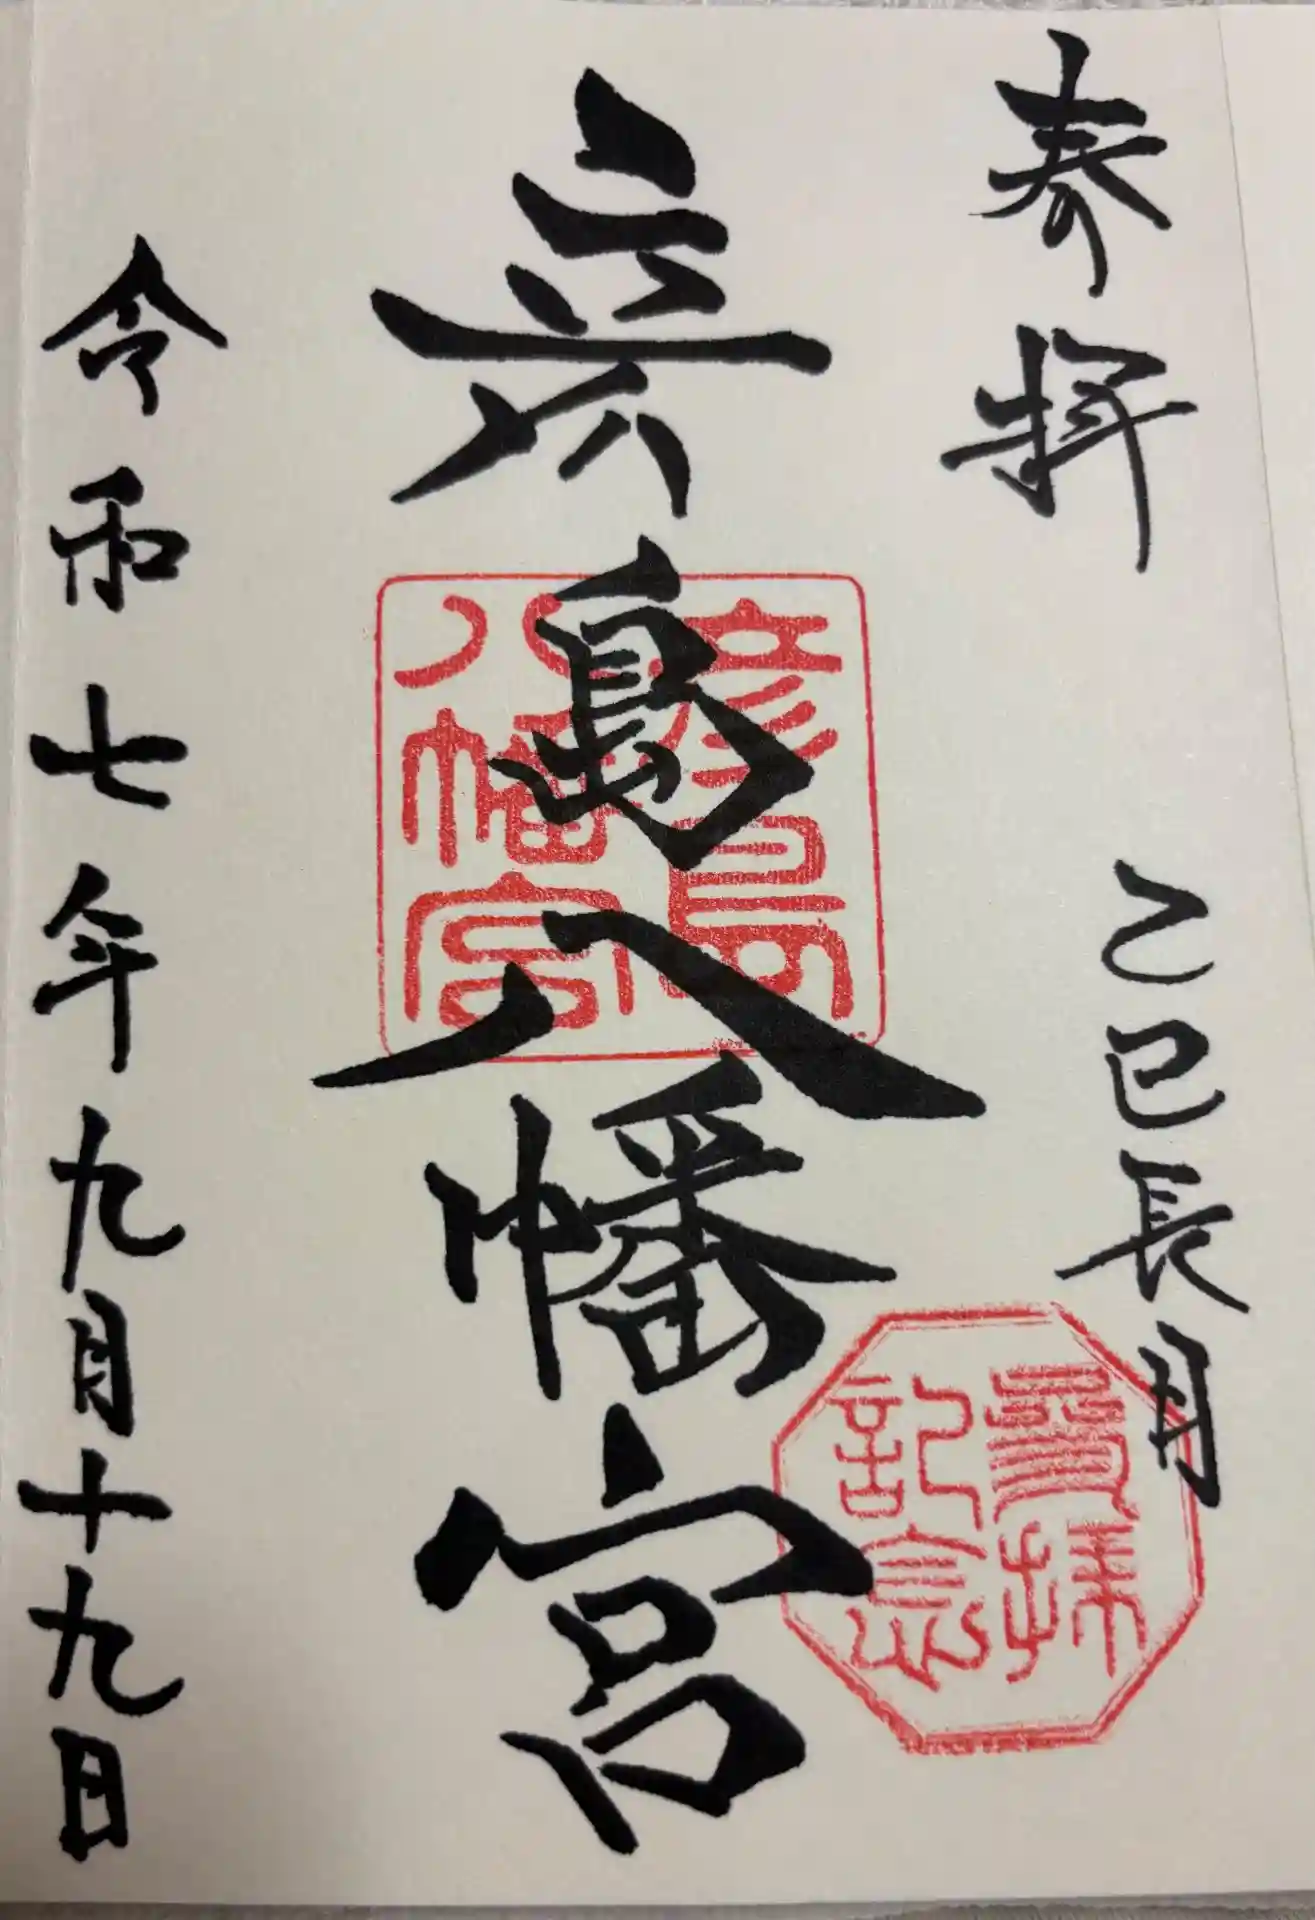 奉拝
乙巳長月
参拝
記念
彦島八幡宮
彦島
八幡宮
令和七年九月十九日